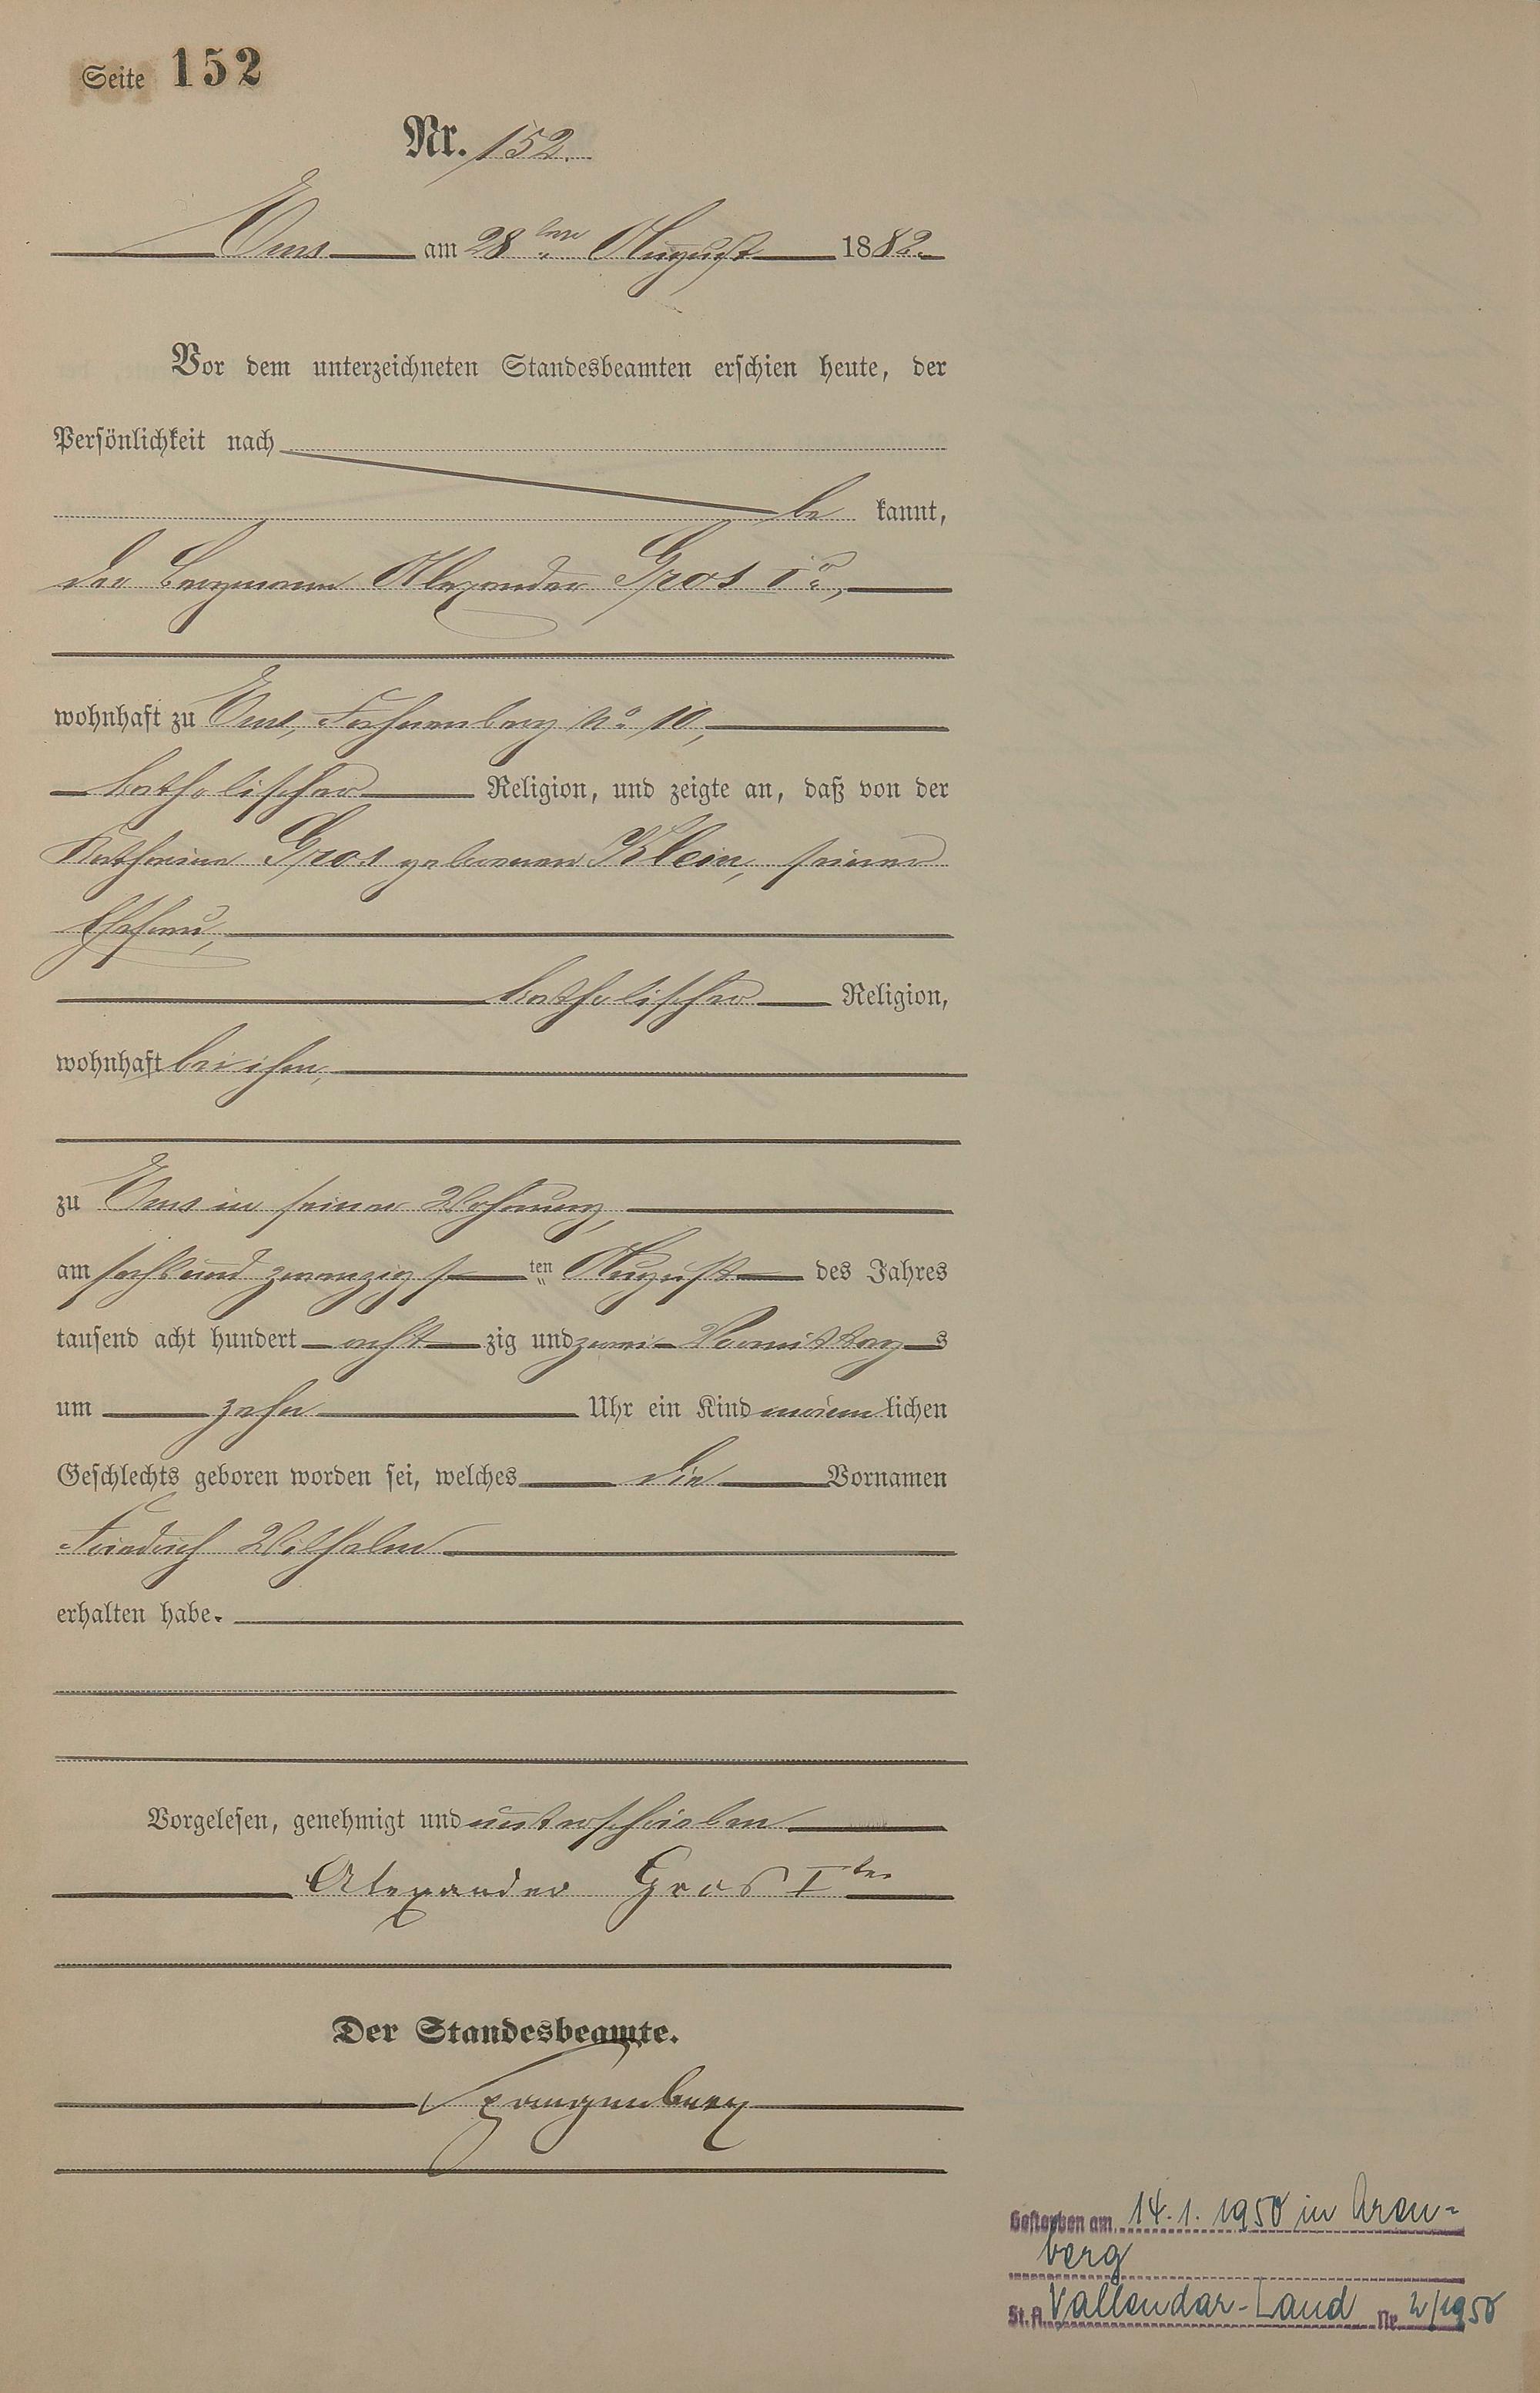 Seite 152
Nr. 152.
Ems am 28ten August 1882.
Vor dem unterzeichneten Standesbeamten erschien heute, der
Persönlichkeit nach
be kannt,
der Bergmann Alexander Gros Ir,
wohnhaft zu Ems, Fahnenberg No 10,
katholischer Religion, und zeigte an, daß von der
Katharina Gros geborenen Klein, seiner
Ehefrau,
katholischer Religion,
wohnhaft bei ihm,
zu Ems in seiner Wohnung,
am sechsundzwanzigsten August des Jahres
tausend acht hundert acht zig und zwei Vormittags
um zehn Uhr ein Kind männlichen
Geschlechts geboren worden sei, welches die Vornamen
Friedrich Wilhelm
erhalten habe.
Vorgelesen, genehmigt und unterschrieben
Alexander Gros Iter
Der Standesbeamte.
Spangenberg
Gestorben am 14.1.1950 in Aren-
berg
St.A. Vallendar-Land Nr. 2/1950